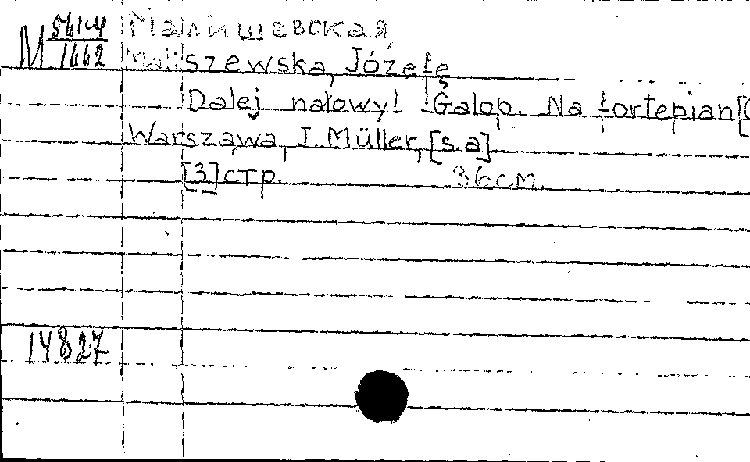 М 561-4/1662 Малишевская
Maliszewska, Józefę
Dalej nałowy! Galop. Na fortepian[
Warszawa, I. Müller, [s.a]
[3]стр. 36см.
14827